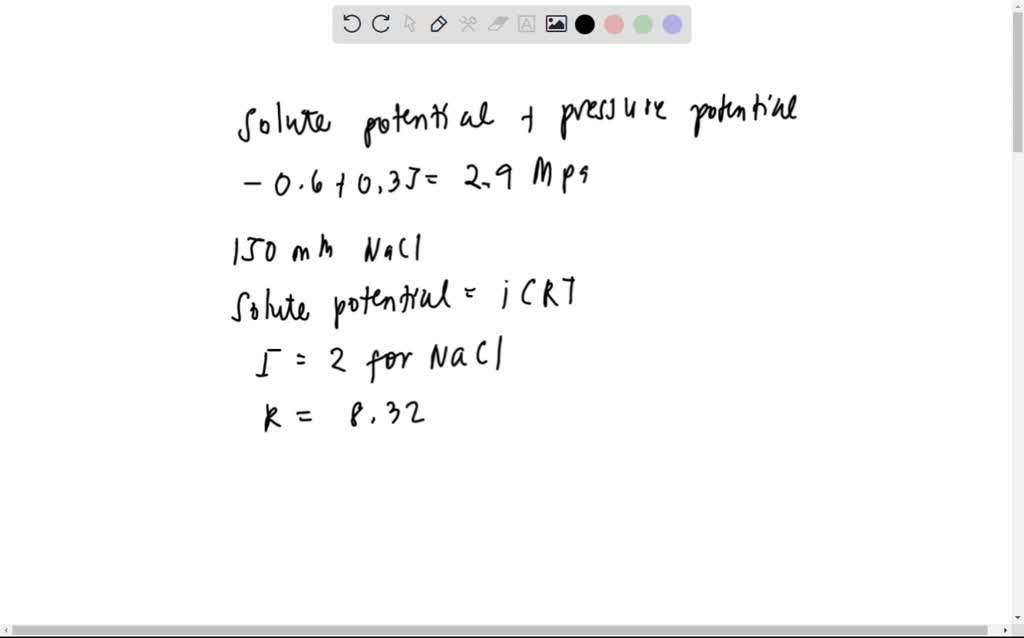 Solute potential + pressure potential
- 0.6 + 0.35 = 2.9 Mpa
150 mM NaCl
Solute potential = iCRT
I = 2 for NaCl
R = 8.32